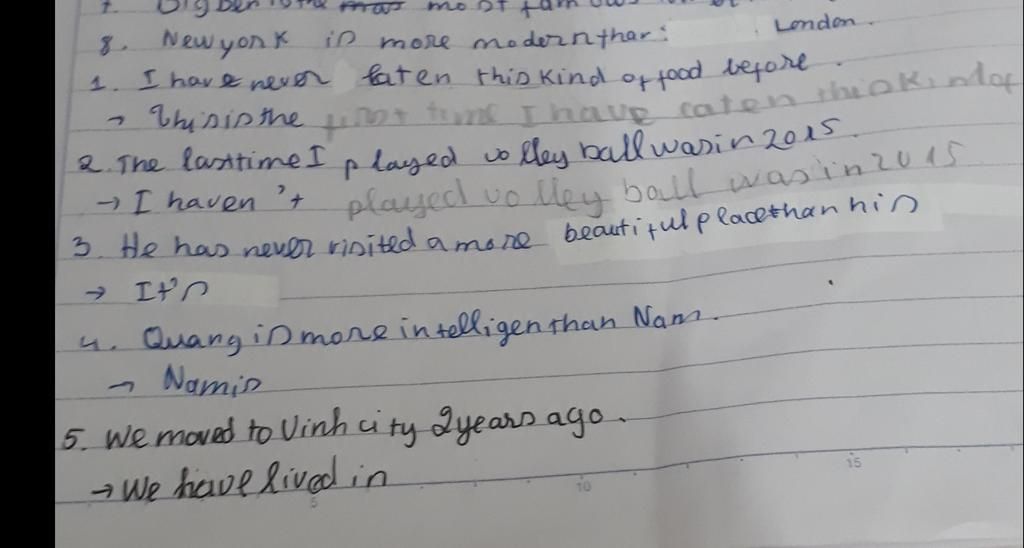 8. Newyork is more modern than London.
1. I have never eaten this kind of food before.
→ This is the first time I have eaten this kind of
2. The last time I played volleyball was in 2015.
→ I haven't played volleyball was in 2015
3. He has never visited a more beautiful place than his
→ It's
4. Quang is more intelligen than Nam.
→ Nam is
5. We moved to Vinh city 2 years ago.
→ We have lived in
5 10 15